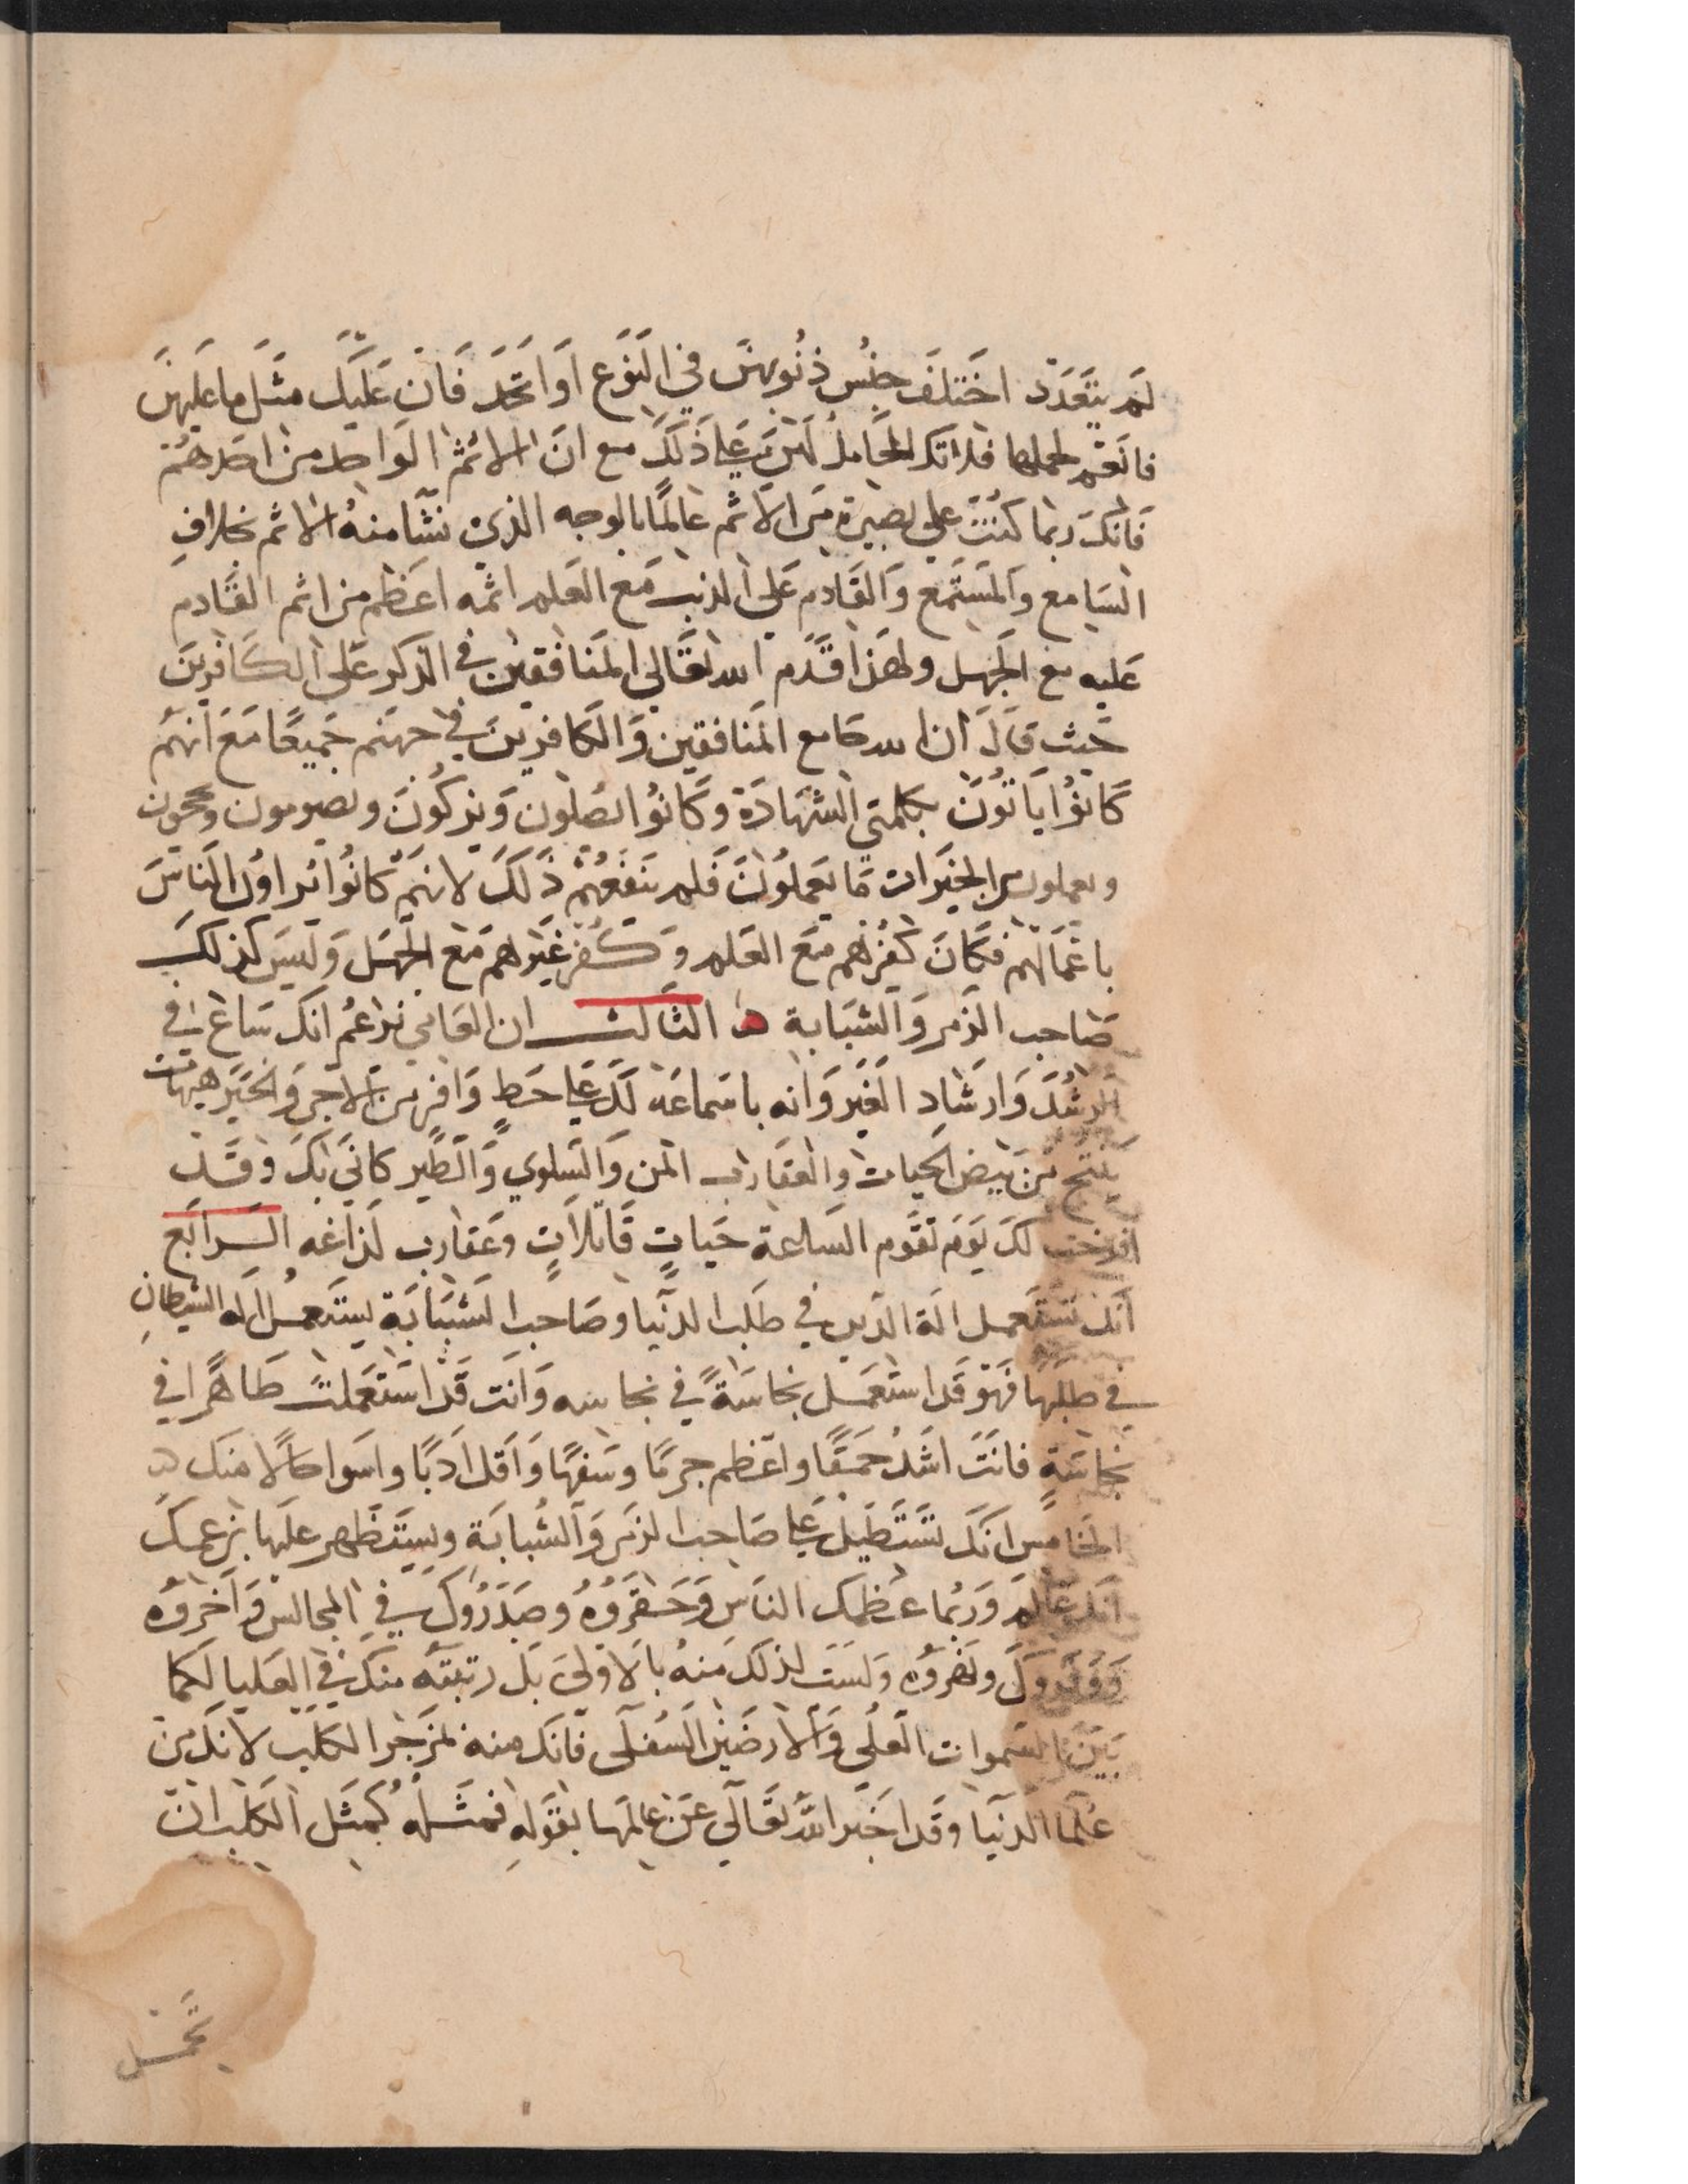 لم يتعدد اختلف جنس ذنوبهن في النوع او اتحد فان عليك مثل ما عليهن
فانعم لحملها فلانك الحامل لهن على ذلك مع ان الاثم الواحد من احدهم
فانك ربما كنت على بصيرة من الاثم عالما بالوجه الذي نشا منه الاثم بخلاف
السامع والمستمع والقادم على الذنب مع العلم اثمه اعظم من اثم القادم
عليه مع الجهل ولهذا قدم الله تعالى المنافقين في الذكر على الكافرين
حيث قال ان الله جامع المنافقين والكافرين في جهنم جميعا مع انهم
كانوا ياتون بكلمتي الشهادة وكانوا يصلون ويزكون ويصومون ويحجون
ويعملون من الخيرات ما يعملون فلم ينفعهم ذلك لانهم كانوا يراون الناس
باعمالهم فكان كفرهم مع العلم وكفر غيرهم مع الجهل وليس كذلك
صاحب الزمر والشبابة ه الثالث ان العامي يزعم انك ساع في
الرشد وارشاد الغير وانه باسماعه لك على حظ وافر من الاجر والخير هيهات
ينتج من بيض الحيات والعقارب المن والسلوي والطير كاني بك وقد
افرخت لك يوم تقوم الساعة حيات قاتلات وعقارب لذاغه الرابع
انك تستعمل الة الدين في طلب الدنيا وصاحب الشبابة يستعمل الة الشيطان
في طلبها فهو قد استعمل نجاسة في نجاسه وانت قد استعملت طاهرا في
نجاسة فانت اشد حمقا واعظم جرما وسفها واقل ادبا واسوا حالا منك ه
الخامس انك تستطيل على صاحب الزمر والشبابة ويستظهر عليها بزعمك
انك عالم وربما عظمك الناس وحقروه وصدروك في المجالس واخروه
ووقروك ونهروه ولست لذلك منه بالاولى بل رتبته منك في العليا لكما
بين السموات العلى والارضين السفلى فانك منه لمزجر الكلب لانك من
علما الدنيا وقد اخبر الله تعالى عن عالمها بقوله فمثله كمثل الكلب ان
تحمل